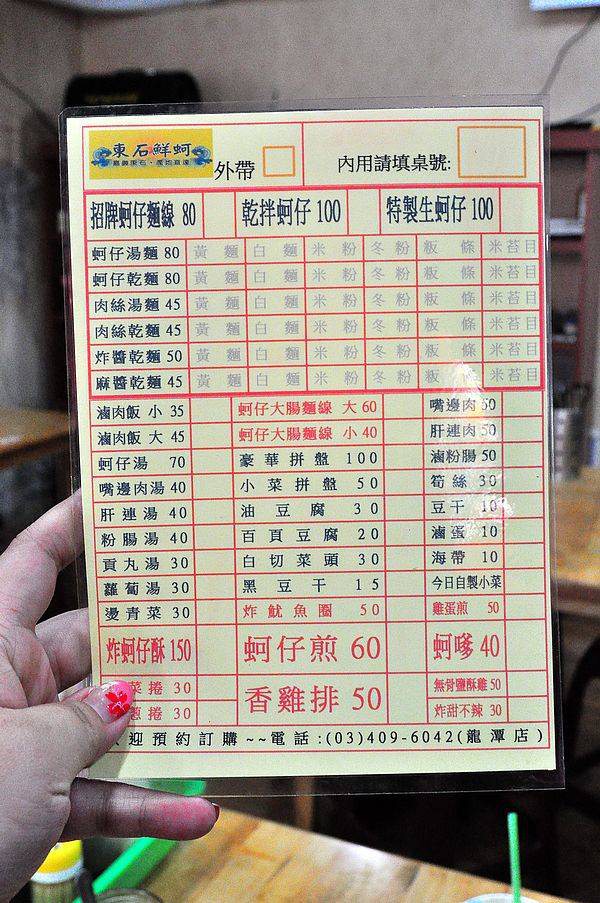 東石鮮蚵
外帶
內用請填桌號:
招牌蚵仔麵線 80 乾拌蚵仔 100 特製生蚵仔 100
蚵仔湯麵 80 黃麵 白麵 米粉 冬粉 粄條 米苔目
蚵仔乾麵 80 黃麵 白麵 米粉 冬粉 粄條 米苔目
肉絲湯麵 45 黃麵 白麵 米粉 冬粉 粄條 米苔目
肉絲乾麵 45 黃麵 白麵 米粉 冬粉 粄條 米苔目
炸醬乾麵 50 黃麵 白麵 米粉 冬粉 粄條 米苔目
麻醬乾麵 45 黃麵 白麵 米粉 冬粉 粄條 米苔目
滷肉飯 小 35 蚵仔大腸麵線 大 60 嘴邊肉 50
滷肉飯 大 45 蚵仔大腸麵線 小 40 肝連肉 50
蚵仔湯 70 豪華拼盤 100 滷粉腸 50
嘴邊肉湯 40 小菜拼盤 50 筍絲 30
肝連湯 40 油豆腐 30 豆干 10
粉腸湯 40 百頁豆腐 20 滷蛋 10
貢丸湯 30 白切菜頭 30 海帶 10
蘿蔔湯 30 黑豆干 15 今日自製小菜
燙青菜 30 炸魷魚圈 50 雞蛋煎 50
炸蚵仔酥 150 蚵仔煎 60 蚵嗲 40
菜捲 30 香雞排 50 無骨鹽酥雞 50
捲 30 炸甜不辣 30
迎預約訂購~~電話:(03)409-6042(龍潭店)